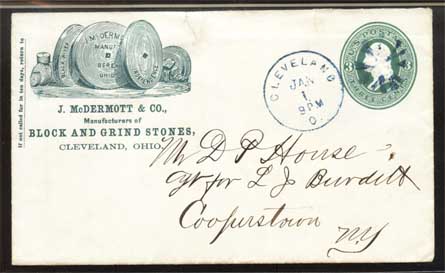 If not called for in ten days, return to
J. McDERMOTT
MANUFAC
BEREA
OHIO
J. McDERMOTT & CO.,
Manufacturers of
BLOCK AND GRIND STONES,
CLEVELAND, OHIO.
CLEVELAND
JAN
1
9PM
O.
U.S. POSTAGE
THREE CENTS
Mr D P House
agt for L J Burditt
Cooperstown
NY